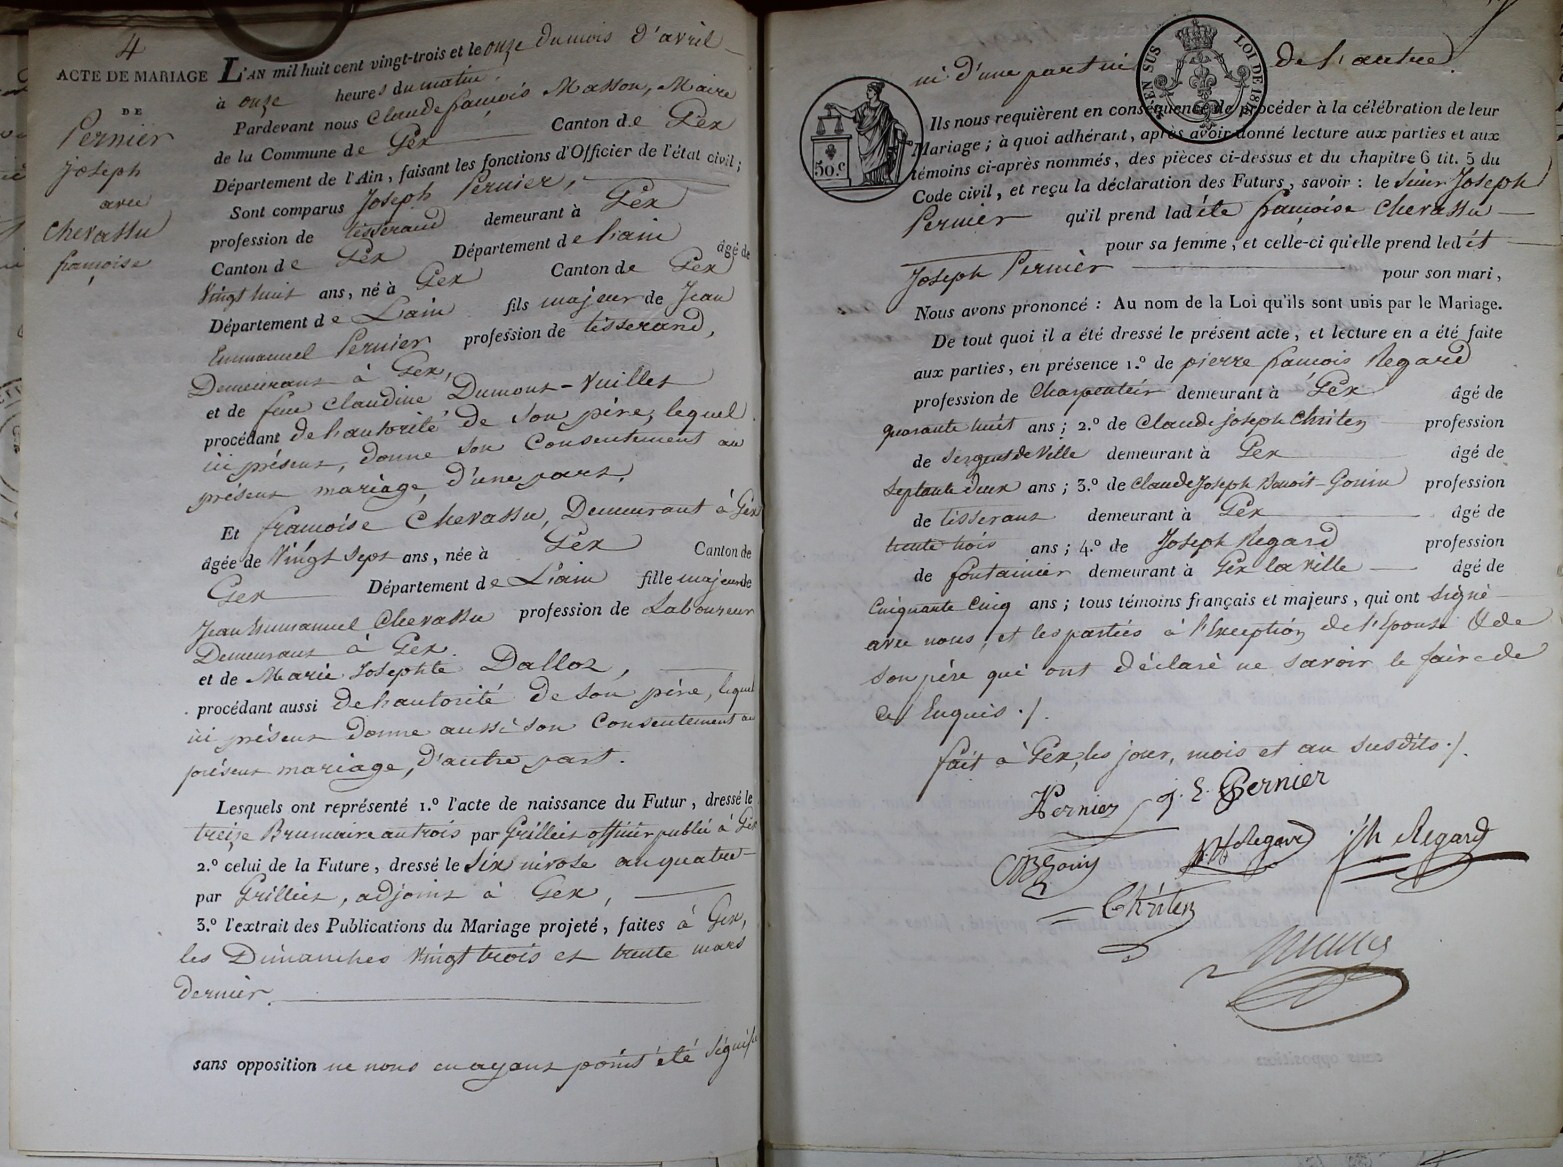 4
ACTE DE MARIAGE
DE
Pernier
Joseph
avec
Chevassu
françoise
L'AN mil huit cent vingt-trois et le onze du mois d'avril
à onze heures du matin.
Pardevant nous Claude françois Masson, Maire
de la Commune de Gex Canton de Gex
Département de l'Ain, faisant les fonctions d'Officier de l'état civil;
Sont comparus Joseph Pernier,
profession de tisserand demeurant à Gex
Canton de Gex Département de L'ain âgé de
Vingt huit ans, né à Gex Canton de Gex
Département de L'ain fils majeur de Jean
Emmanuel Pernier profession de tisserand,
Demeurant à Gex,
et de feue Claudine Dumont-Vuillet
procédant de l'autorité de son père, lequel
ici présent, donne son Consentement au
présent mariage, d'une part,
Et françoise Chevassu, Demeurant à Gex
âgée de Vingt sept ans, née à Gex Canton de
Gex Département de L'ain fille majeure de
Jean Emmanuel Chevassu profession de Laboureur
Demeurant à Gex.
et de Marie Josephte Dalloz,
procédant aussi de l'autorité de son père, lequel
ici présent donne aussi son Consentement au
présent mariage, d'autre part.
Lesquels ont représenté 1.º l'acte de naissance du Futur, dressé le
treize Brumaire an trois par Grilliet officier public à Gex
2.º celui de la Future, dressé le Six nivose an quatre
par Grilliet, adjoint à Gex,
3.º l'extrait des Publications du Mariage projeté, faites à Gex,
les Dimanches Vingt trois et trente mars
dernier.
sans opposition ne nous en ayant point été signifié
ni d'une part ni de l'autre.
EN SUS
LOI DE
50.c
Ils nous requièrent en conséquence de procéder à la célébration de leur
Mariage; à quoi adhérant, après avoir donné lecture aux parties et aux
témoins ci-après nommés, des pièces ci-dessus et du chapitre 6 tit. 5 du
Code civil, et reçu la déclaration des Futurs, savoir: le Sieur Joseph
Pernier qu'il prend ladéte françoise Chevassu
pour sa femme, et celle-ci qu'elle prend ledét
Joseph Pernier pour son mari,
Nous avons prononcé: Au nom de la Loi qu'ils sont unis par le Mariage.
De tout quoi il a été dressé le présent acte, et lecture en a été faite
aux parties, en présence 1.º de pierre francois Regard
profession de Charpentier demeurant à Gex âgé de
quarante huit ans; 2.º de Claude Joseph Christen profession
de Sergent de Ville demeurant à Gex âgé de
Septante deux ans; 3.º de Claude Joseph Benoit-Gonin profession
de tisserant demeurant à Gex âgé de
trente trois ans; 4.º de Joseph Regard profession
de fontainier demeurant à Gex la Ville âgé de
Cinquante Cinq ans; tous témoins français et majeurs, qui ont signé
avec nous, et les parties à l'exception de l'épouse & de
son père qui ont déclaré ne savoir le faire de
ce Enquis ./.
fait à Gex, les jour, mois et an susdits ./.
Pernier J. E. Pernier
Regard Jh Regard
Masson